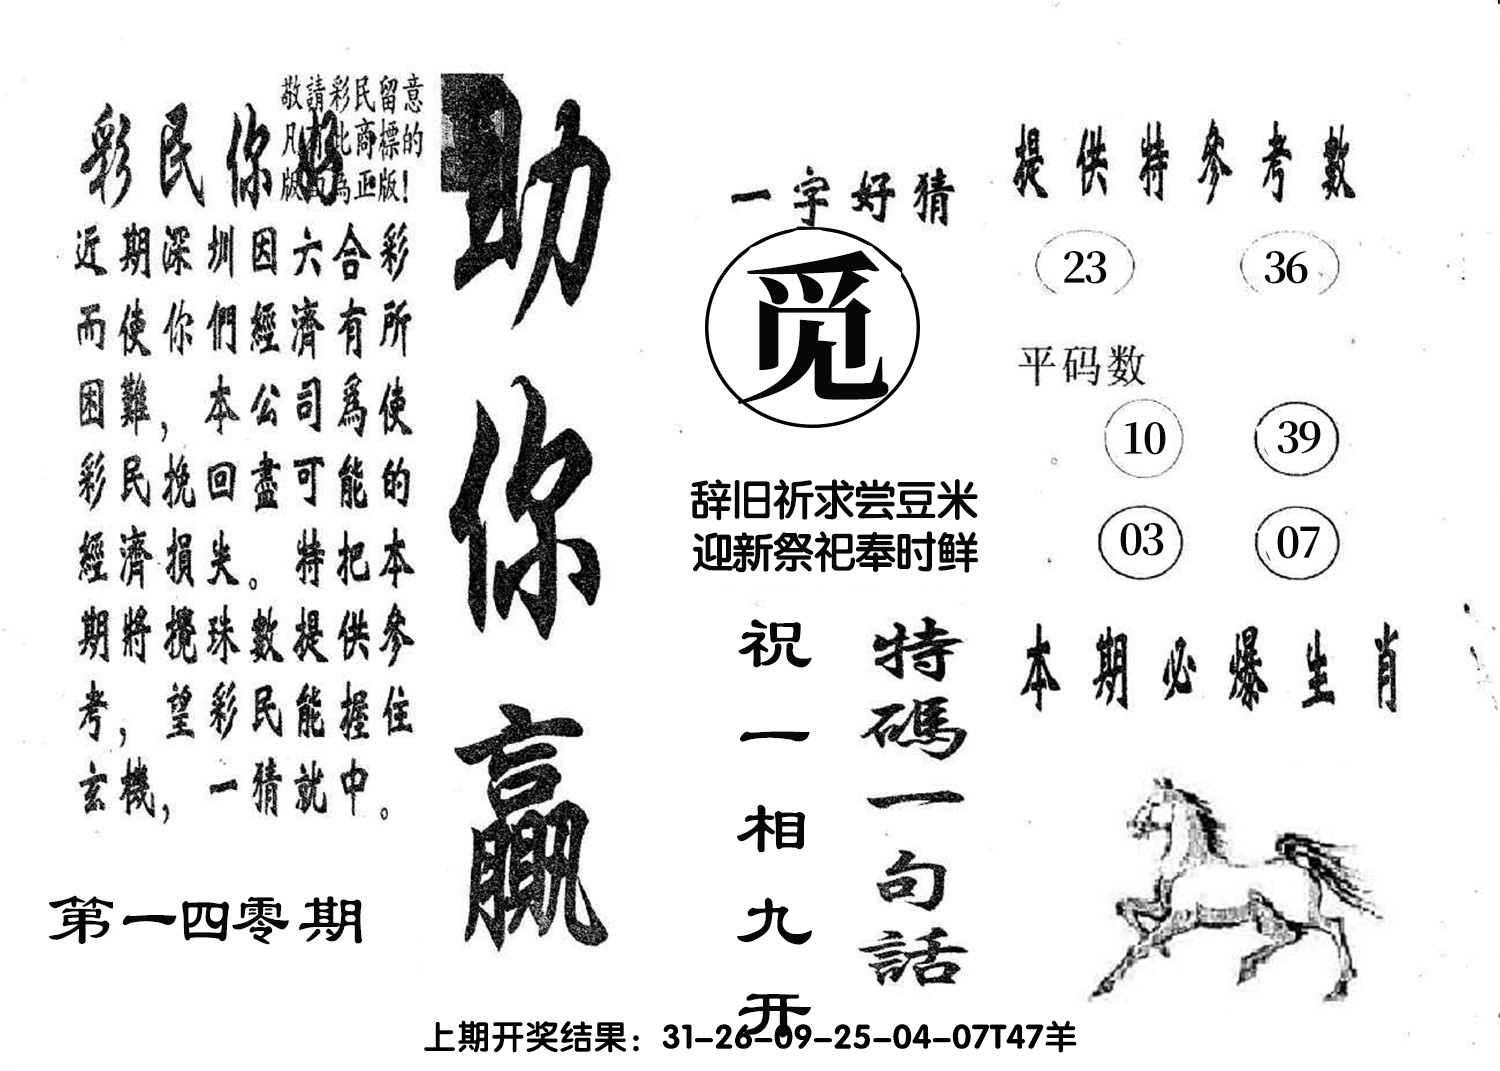 敬請彩民留意
凡有此商標的
版面為正版!
彩民你好
近期深圳因六合彩
而使你們經濟有所
困難，本公司爲使
彩民挽回盡可能的
經濟損失。特把本
期將攪珠數提供參
考，望彩民能握住
玄機，一猜就中。
第一四零期
助你赢
一字好猜
觅
辞旧祈求尝豆米
迎新祭祀奉时鲜
特碼一句話
祝一相九开
提供特参考數
23 36
平码数
10 39
03 07
本期必爆生肖
上期开奖结果：31-26-09-25-04-07T47羊